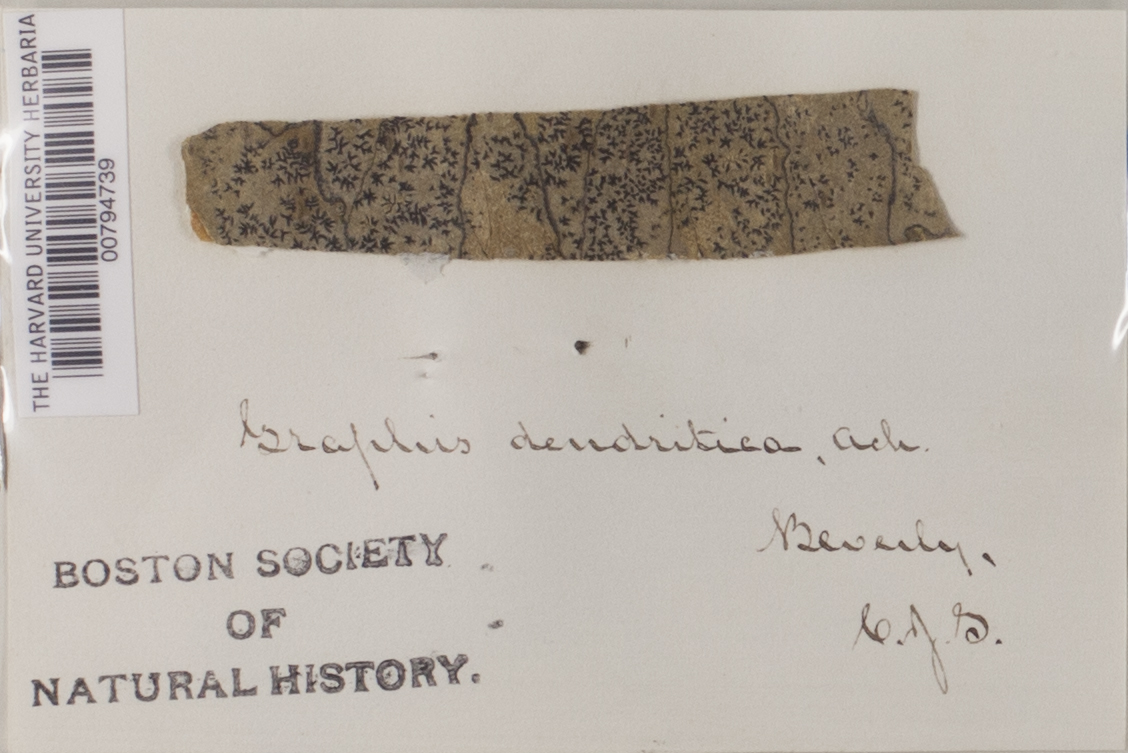 THE HARVARD UNIVERSITY HERBARIA
00794739
Graphis dendritica, Ach.
Beverly.
C.J.S.
BOSTON SOCIETY
OF
NATURAL HISTORY.